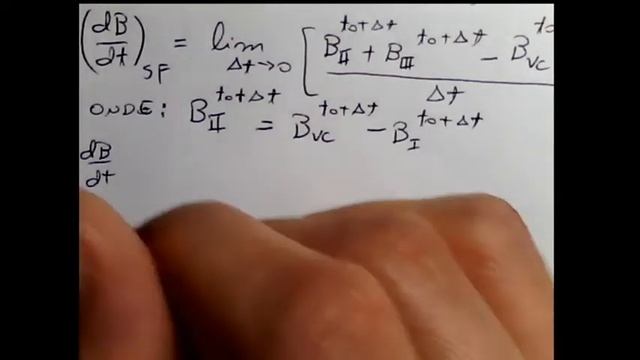 (dB/dt)_SF = lim_{Δt→0} [ (B_II^{t₀+Δt} + B_III^{t₀+Δt} - B_VC^{t₀}) / Δt
ONDE: B_II^{t₀+Δt} = B_VC^{t₀+Δt} - B_I^{t₀+Δt}
dB/dt